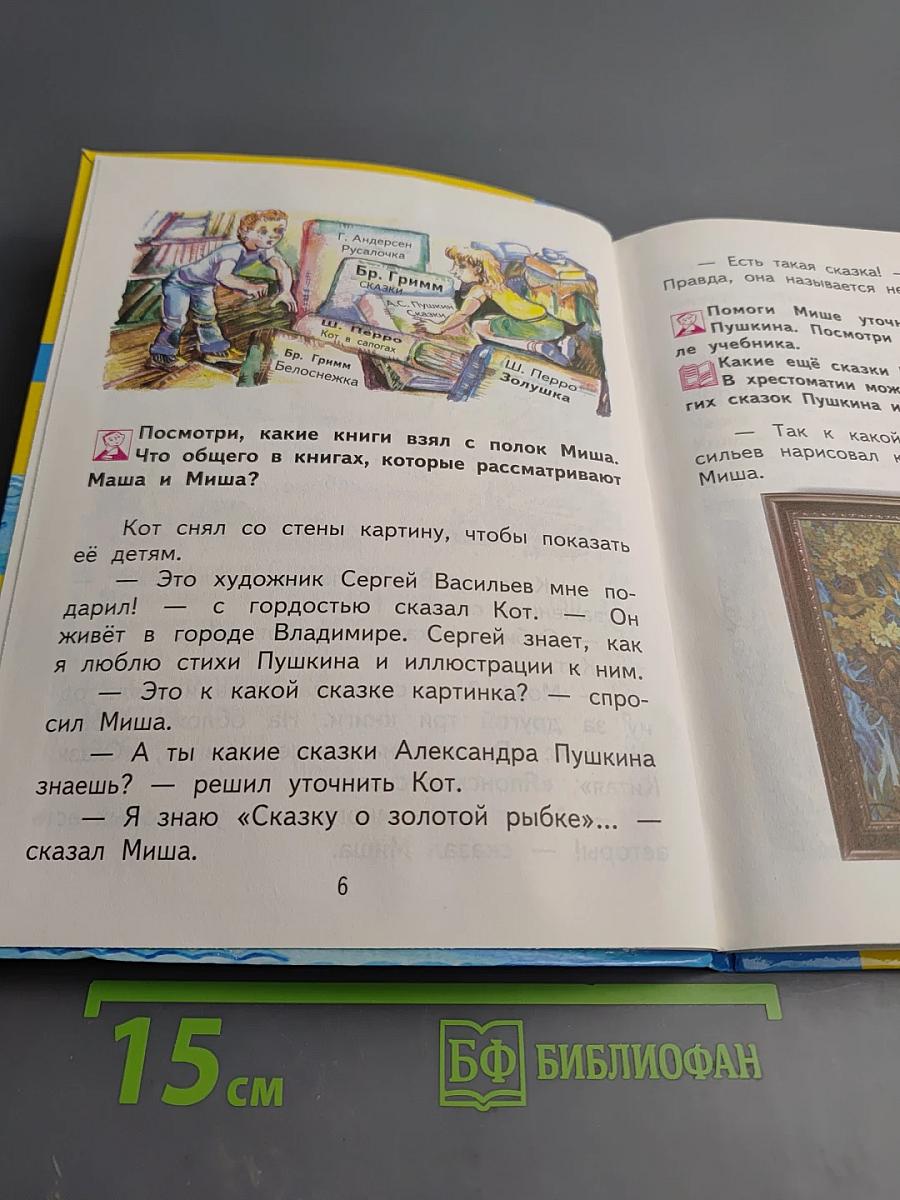 Г. Андерсен
Русалочка
Бр. Гримм
СКАЗКИ
А.С. Пушкин
Сказки
Ш. Перро
Кот в сапогах
Бр. Гримм
Белоснежка
Ш. Перро
Золушка
Посмотри, какие книги взял с полок Миша.
Что общего в книгах, которые рассматривают
Маша и Миша?
Кот снял со стены картину, чтобы показать
её детям.
— Это художник Сергей Васильев мне по-
дарил! — с гордостью сказал Кот. — Он
живёт в городе Владимире. Сергей знает, как
я люблю стихи Пушкина и иллюстрации к ним.
— Это к какой сказке картинка? — спро-
сил Миша.
— А ты какие сказки Александра Пушкина
знаешь? — решил уточнить Кот.
— Я знаю «Сказку о золотой рыбке»... —
сказал Миша.
6
— Есть такая сказка! —
Правда, она называется не
Помоги Мише уточн
Пушкина. Посмотри
ле учебника.
Какие ещё сказки
В хрестоматии мож
гих сказок Пушкина и
— Так к какой
сильев нарисовал к
Миша.
15 см
БФ БИБЛИОФАН